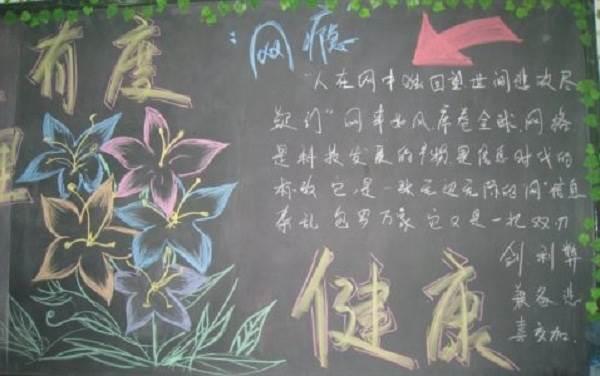 有度
网瘾
"人在网中独回望世间悲欢尽
疑们"网事如风席卷全球.网络
是科技发展的产物是信息时代的
标致它是一张无边无际的网信息
杂乱包罗万象它又是一把双刃
剑利弊
兼备悲
喜交加.
健康